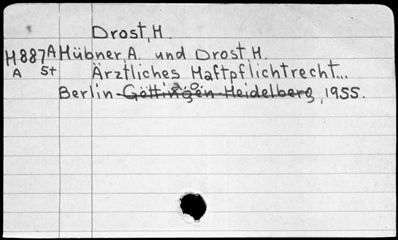 Drost, H.
H887A Hübner, A. und Drost, H.
A 5t Ärztliches Haftpflichtrecht...
Berlin-Göttingen-Heidelberg, 1955.